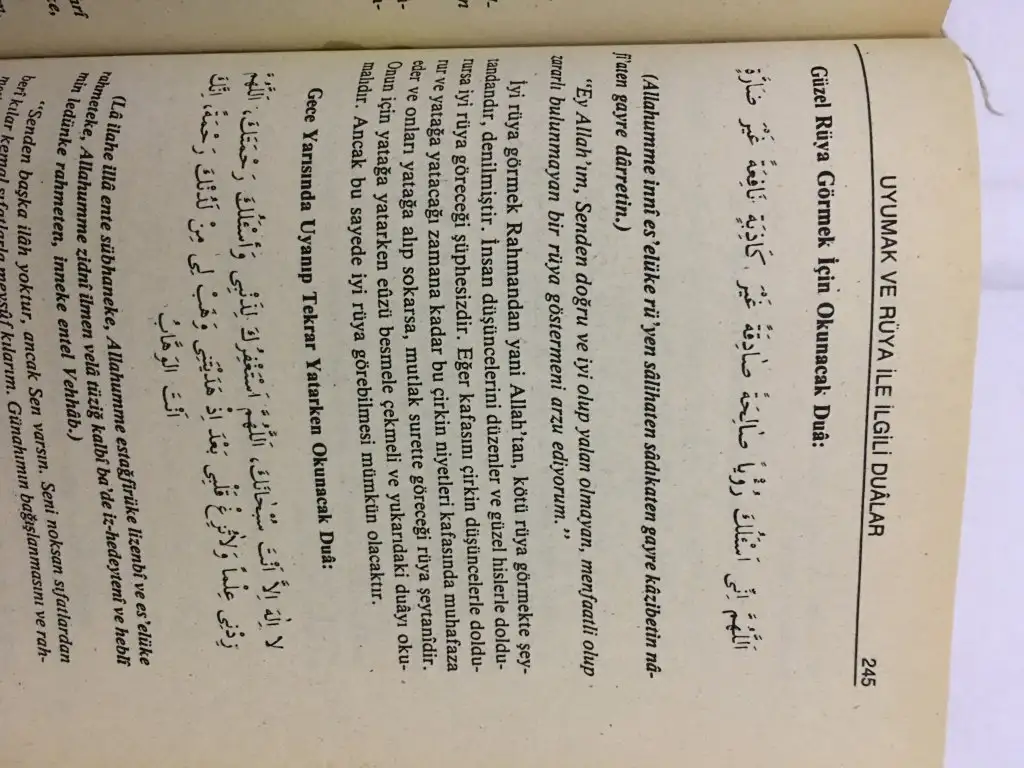 UYUMAK VE RÜYA İLE İLGİLİ DUÂLAR 245
Güzel Rüya Görmek İçin Okunacak Duâ:
اَللّٰهُمَّ اِنِّى اَسْئَلُكَ رُوْيًا صَالِحَةً صَادِقَةً غَيْرَ كَاذِبَةٍ نَافِعَةً غَيْرَ ضَارَّةٍ
(Allahumme innî es'elüke rü'yen sâlihaten sâdıkaten gayre kâzibetin nâ-
fi'aten gayre dârretin.)
"Ey Allah'ım, Senden doğru ve iyi olup yalan olmayan, menfaatli olup
zararlı bulunmayan bir rüya göstermeni arzu ediyorum."
İyi rüya görmek Rahmandan yani Allah'tan, kötü rüya görmekte şey-
tandandır, denilmiştir. İnsan düşüncelerini düzenler ve güzel hislerle doldu-
rursa iyi rüya göreceği şüphesizdir. Eğer kafasını çirkin düşüncelerle doldu-
rur ve yatağa yatacağı zamana kadar bu çirkin niyetleri kafasında muhafaza
eder ve onları yatağa alıp sokarsa, mutlak surette göreceği rüya şeytanîdir.
Onun için yatağa yatarken eûzü besmele çekmeli ve yukarıdaki duâyı oku-
malıdır. Ancak bu sayede iyi rüya görebilmesi mümkün olacaktır.
Gece Yarısında Uyanıp Tekrar Yatarken Okunacak Duâ:
لَا اِلٰهَ اِلَّا اَنْتَ سُبْحَانَكَ، اَللّٰهُمَّ اَسْتَغْفِرُكَ لِذَنْبِى وَاَسْئَلُكَ رَحْمَتَكَ، اَللّٰهُمَّ
زِدْنِى عِلْمًا وَلَاتُزِغْ قَلْبِى بَعْدَ اِذْ هَدَيْتَنِى وَهَبْ لِى مِنْ لَدُنْكَ رَحْمَةً، اِنَّكَ
اَنْتَ الْوَهَّابُ
(Lâ ilahe illâ ente sübhaneke, Allahumme estağfirüke lizenbî ve es'elüke
rahmeteke, Allahumme zidnî ilmen velâ tüziğ kalbî ba'de iz-hedeytenî ve heblî
min ledünke rahmeten, inneke entel Vehhâb.)
"Senden başka ilâh yoktur, ancak Sen varsın. Seni noksan sıfatlardan
berî kılar kemal sıfatlarla mevsûf kılarım. Günahımın bağışlanmasını ve rah-